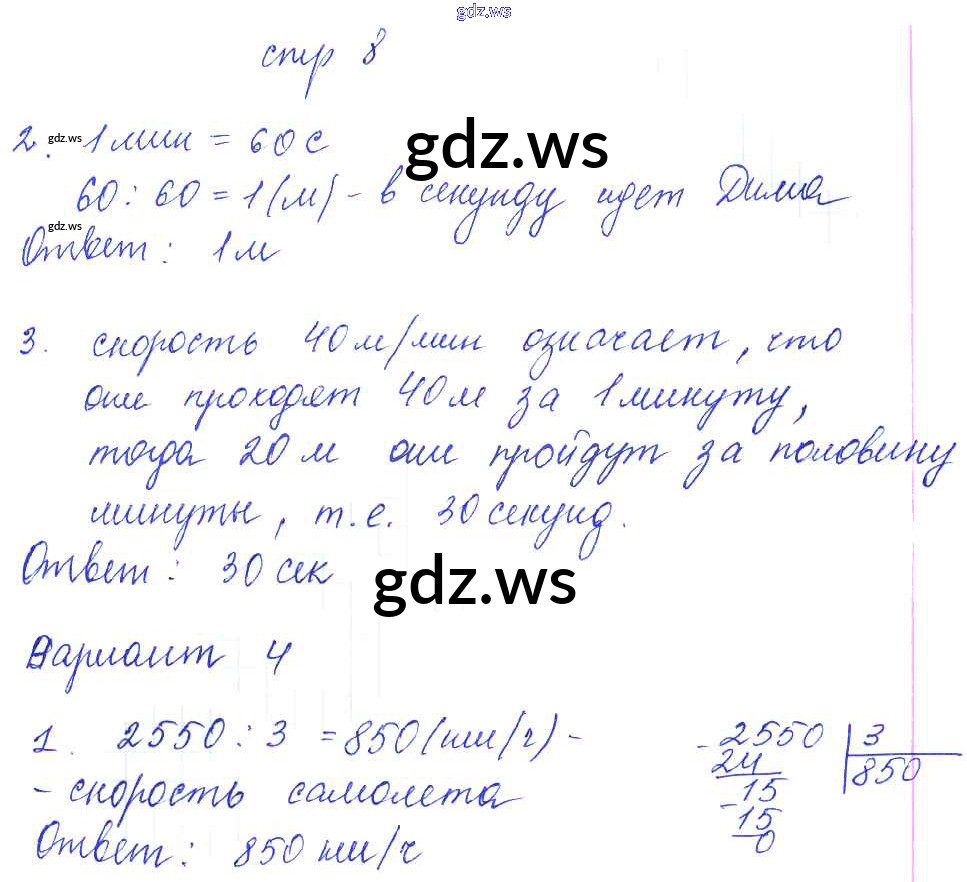 gdz.ws
стр 8
2. gdz.ws 1 мин = 60 с
gdz.ws
60 : 60 = 1 (м) - в секунду идет Дима
gdz.ws
Ответ : 1 м
3. скорость 40 м/мин означает, что
они проходят 40 м за 1 минуту,
тогда 20 м они пройдут за половину
минуты, т.е. 30 секунд.
Ответ : 30 сек
gdz.ws
Вариант 4
1. 2550 : 3 = 850 (км/ч) -
- скорость самолета
Ответ : 850 км/ч
- 2550 | 3
24 850
15
- 15
0